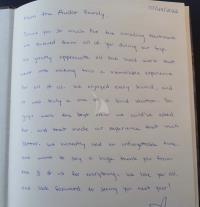 From the Austin Family,
Thank you so much for the amazing treatment
we received from all of you during our trip.
We greatly appreciate all the hard work that
went into making this a remarkable experience
for all of us. We enjoyed every second, and
it was truly a one of a kind vacation. You
guys were the best crew we could've asked
for, and that made our experience that much
better. We honestly had an unforgettable time
and want to say a huge thank you from
the 5 of us for everything. We love you all,
and look forward to seeing you next year!